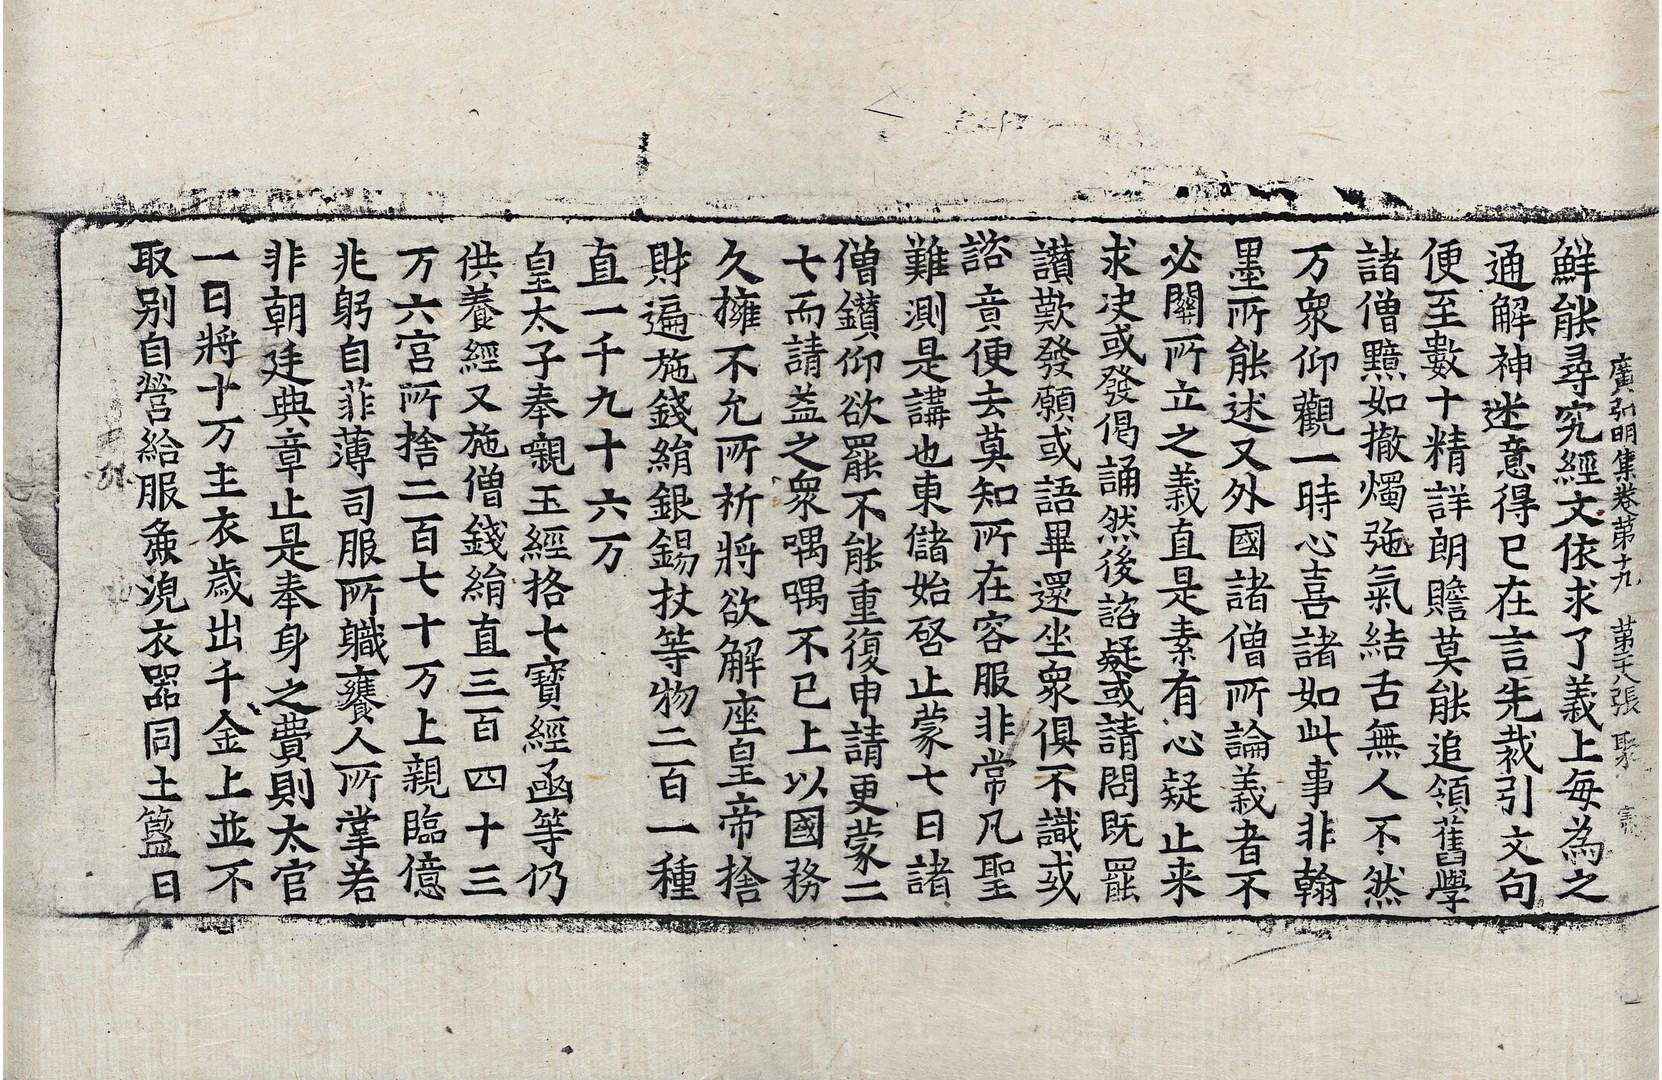 廣弘明集卷第十九 第二十八張 聚
鮮能尋究經文依求了義上每為之
通解神迷意得已在言先裁引文句
便至數十精詳朗贍莫能追領舊學
諸僧黯如撤燭弛氣結舌無人不然
万衆仰觀一時心喜諸如此事非翰
墨所能述又外國諸僧所論義者不
必關所立之義直是素有心疑止来
求决或發偈誦然後諮疑或請問既罷
讃歎發願或語畢還坐衆俱不識或
諮竟便去莫知所在容服非常凡聖
難測是講也東儲始啓止蒙七日諸
僧鑽仰欲罷不能重復申請更蒙二
七而請益之衆喁喁不已上以國務
久擁不允所祈將欲解座皇帝捨
財遍施錢絹銀錫杖等物二百一種
直一千九十六万
皇太子奉嚫玉經格七寶經凾等仍
供養經又施僧錢絹直三百四十三
万六宫所捨二百七十万上親臨億
兆躬自菲薄司服所軄饔人所掌若
非朝廷典章止是奉身之費則太官
一日將十万主衣歲出千金上並不
取别自營給服麁浣衣器同土簋日